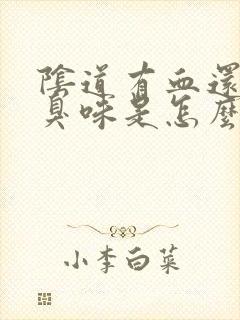 陰道有血還
臭味是怎麼
小李白菜